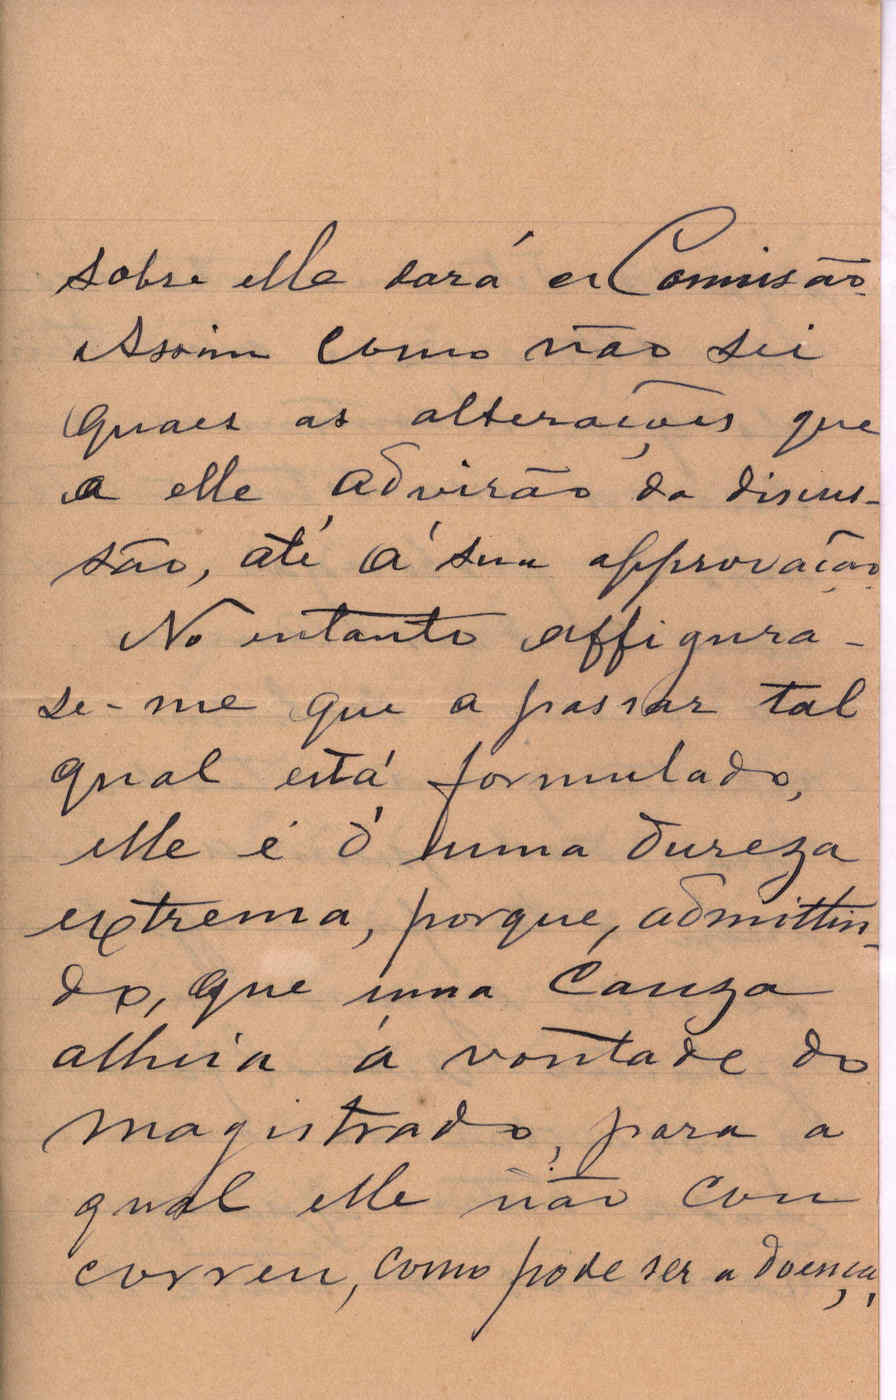 sobre elle dará a Comissão.
Assim como não sei
quaes as alterações que
a elle advirão da discus-
são, até á sua approvação.
No entanto affigura-
se-me que a passar tal
qual está formulado,
elle é d' uma dureza
extrema, porque, admittin-
do, que uma cauza
alheia á vontade do
magistrado, para a
qual elle não con
correu, como pode ser a doença,